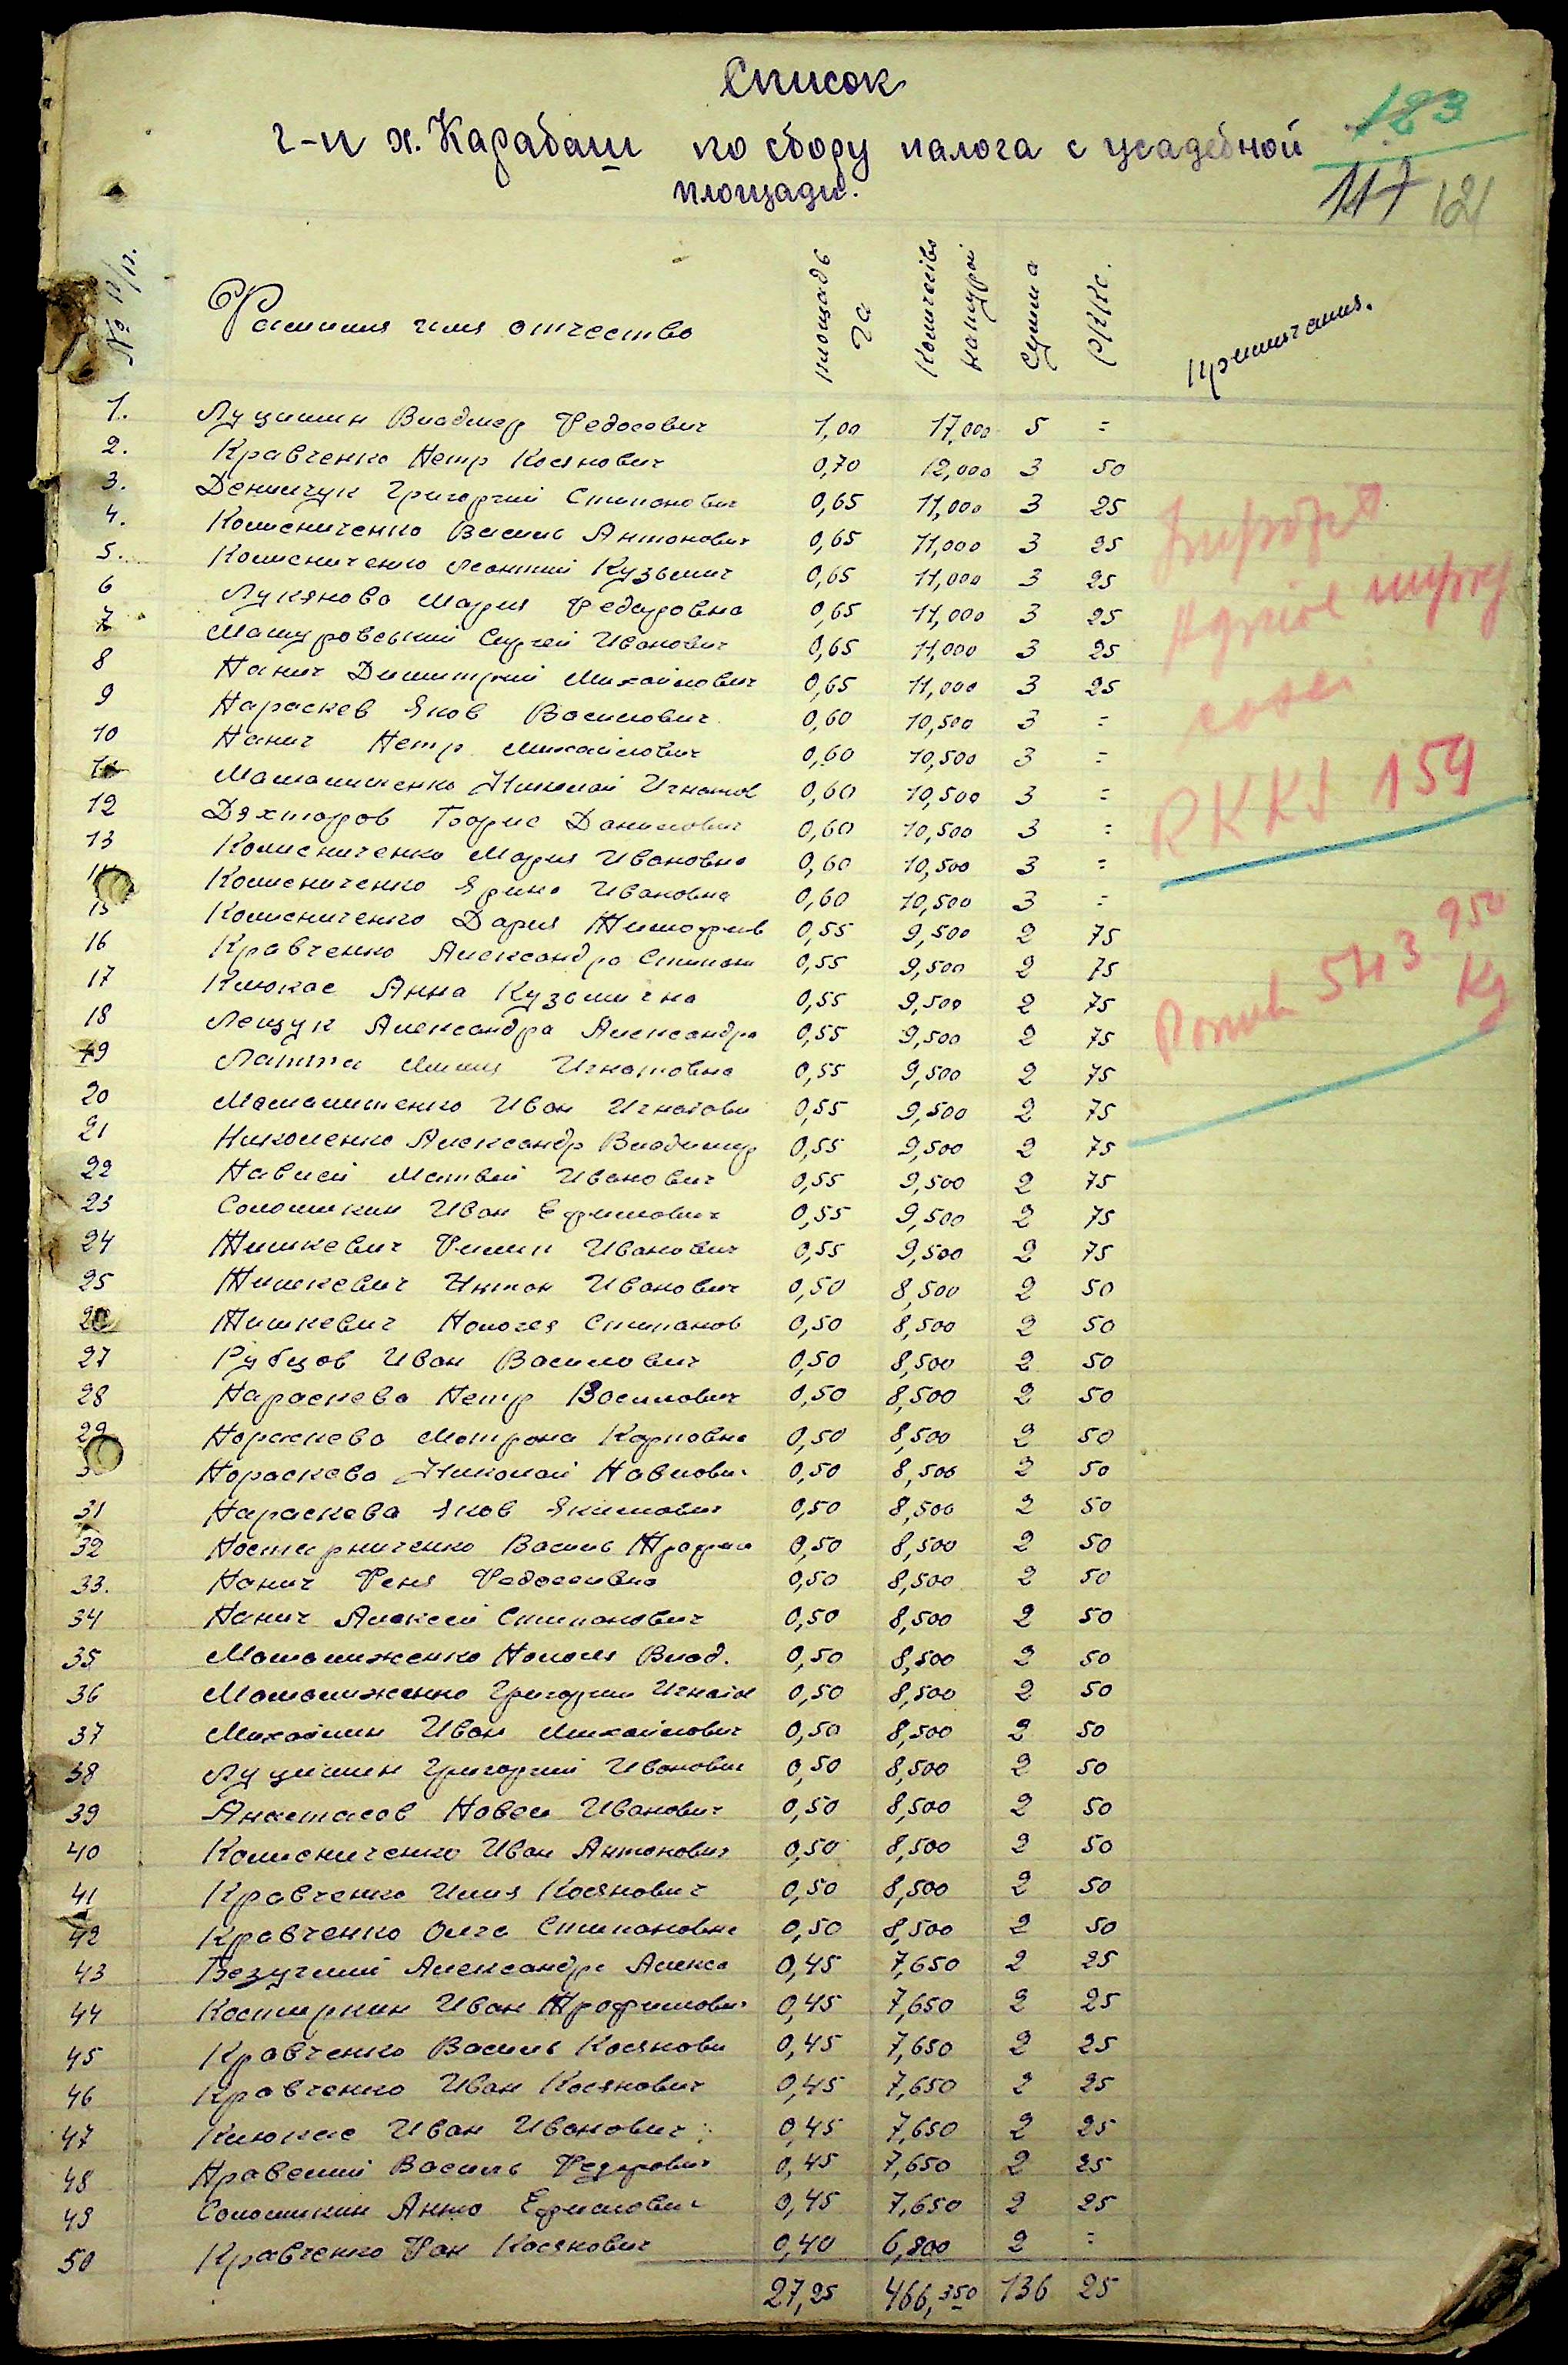 Список
г-н х. Карабаш по сбору налога с усадебной
площади.
183
117 121
№ п/п. Фамилия имя отчество площадь га Количество натурой Сумма РККС. примичания.
1. Луцишин Владмер Федосович 1,00 17,000 5 =
2. Кравченко Петр Косянович 0,70 12,000 3 50
3. Денищук Григорий Стипанович 0,65 11,000 3 25
4. Колисниченко Василь Антонович 0,65 11,000 3 25
5. Колисниченко Леонтий Кузьмич 0,65 11,000 3 25
6 Лукянова Мария Федоровна 0,65 11,000 3 25
7 Мошуровський Сергей Иванович 0,65 11,000 3 25
8 Панич Димитрий Михайлович 0,65 11,000 3 25
9 Параскев Яков Василович 0,60 10,500 3 =
10 Панич Петр Михайлович 0,60 10,500 3 =
11 Маталиженко Николай Игнатов 0,60 10,500 3 =
12 Дяхторов Борис Данилович 0,60 10,500 3 =
13 Колисниченко Мария Ивановна 0,60 10,500 3 =
14 Колисниченко Ярина Ивановна 0,60 10,500 3 =
15 Колисниченко Дария Тимофеев 0,55 9,500 2 75
16 Кравченко Александра Стипан 0,55 9,500 2 75
17 Клюкас Анна Кузьмична 0,55 9,500 2 75
18 Лещук Александра Александро 0,55 9,500 2 75
19 Латта Лилия Игнатовна 0,55 9,500 2 75
20 Маталиженко Иван Игнатови 0,55 9,500 2 75
21 Николенко Александр Владимир 0,55 9,500 2 75
22 Павлей Матвий Иванович 0,55 9,500 2 75
23 Соломикин Иван Ефимович 0,55 9,500 2 75
24 Тишкевич Филип Иванович 0,55 9,500 2 75
25 Тишкевич Антон Иванович 0,50 8,500 2 50
26 Тишкевич Пологея Стипанов 0,50 8,500 2 50
27 Рубцов Иван Василович 0,50 8,500 2 50
28 Параскева Петр Василович 0,50 8,500 2 50
29 Параскева Мотрона Карповна 0,50 8,500 2 50
3 Параскева Николай Павлович 0,50 8,500 2 50
31 Параскева Яков Якимович 0,50 8,500 2 50
32 Постирниченко Василь Трофим 0,50 8,500 2 50
33. Панич Феня Федосеивна 0,50 8,500 2 50
34 Панич Алексей Стипанович 0,50 8,500 2 50
35 Маталиженко Пологея Влад. 0,50 8,500 2 50
36 Маталиженко Григорий Игнатов 0,50 8,500 2 50
37 Михайлин Иван Михайлович 0,50 8,500 2 50
38 Луцишин Григорий Иванович 0,50 8,500 2 50
39 Анастасов Павел Иванович 0,50 8,500 2 50
40 Колисниченко Иван Антонович 0,50 8,500 2 50
41 Кравченко Илия Косянович 0,50 8,500 2 50
42 Кравченко Олга Стипановна 0,50 8,500 2 50
43 Безуглий Александр Алекса 0,45 7,650 2 25
44 Костиркин Иван Трофимович 0,45 7,650 2 25
45 Кравченко Василь Косянови 0,45 7,650 2 25
46 Кравченко Иван Косянович 0,45 7,650 2 25
47 Клюкас Иван Иванович 0,45 7,650 2 25
48 Правелий Василь Федорович 0,45 7,650 2 25
49 Соломикин Анно Ефимович 0,45 7,650 2 25
50 Кравченко Фан Косянович 0,40 6,800 2 =
27,25 466,350 136 25
RKKS 159
Porumb 543 950 Kg